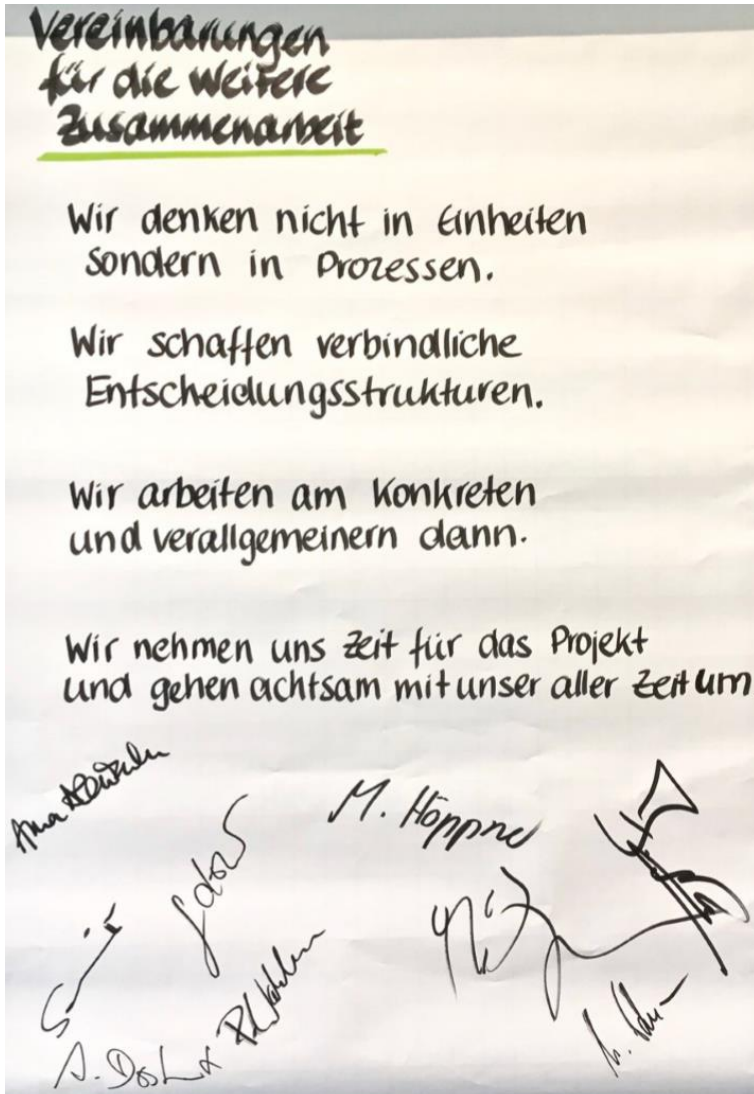 Vereinbarungen
für die weitere
Zusammenarbeit
Wir denken nicht in Einheiten
sondern in Prozessen.
Wir schaffen verbindliche
Entscheidungsstrukturen.
Wir arbeiten am Konkreten
und verallgemeinern dann.
Wir nehmen uns Zeit für das Projekt
und gehen achtsam mit unser aller Zeit um
M. Höppner